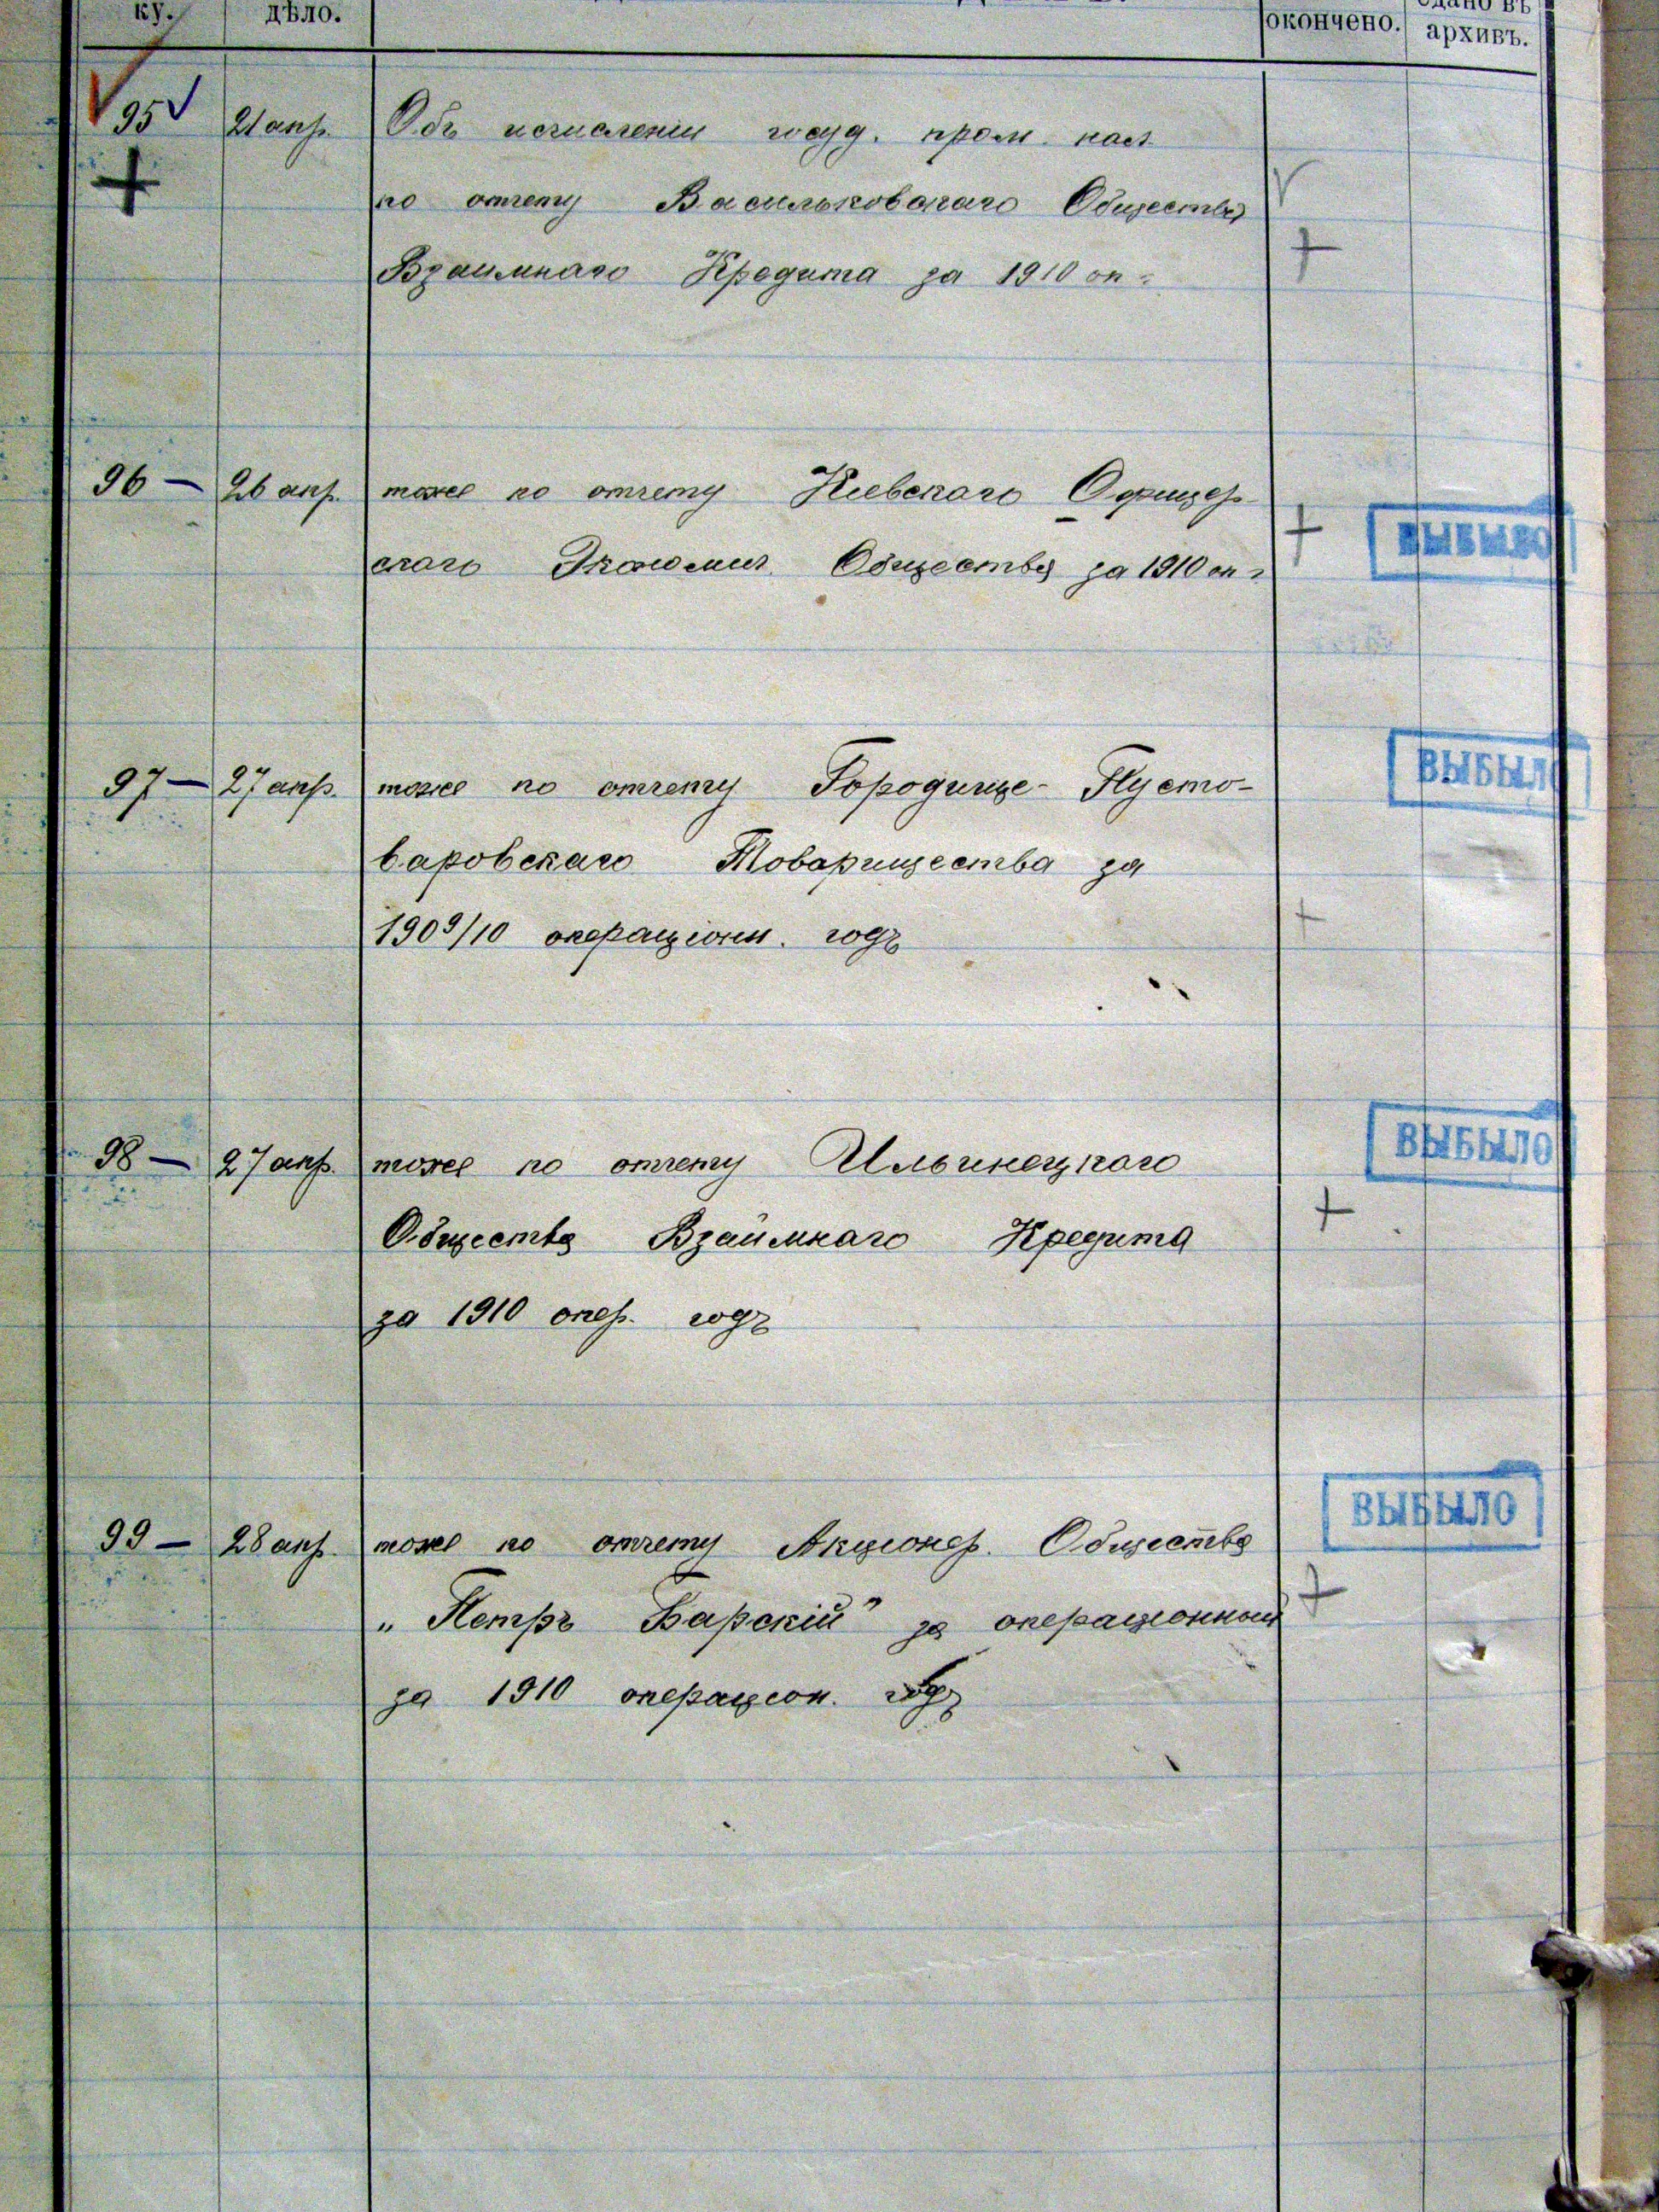 ку. дѣло. окончено. сдано въ архивъ.
95 21 апр. Объ исчисленіи госуд. пром. нал.
по отчету Васильковскаго Общества
Взаимнаго Кредита за 1910 оп.
96 — 26 апр. тоже по отчету Кіевскаго Офицер
скаго Экономич. Общества за 1910 оп. г.
ВЫБЫЛО
97 — 27 апр. тоже по отчету Городище-Пусто-
ВЫБЫЛО
варовскаго Товарищества за
1909/10 операціонн. годъ
98 — 27 апр. тоже по отчету Ильинецкаго
ВЫБЫЛО
Общества Взаимнаго Кредита
за 1910 опер. годъ
99 — 28 апр. тоже по отчету Акціонер. Общества
ВЫБЫЛО
„Петръ Барскій" за операціонный
за 1910 операціон. годъ